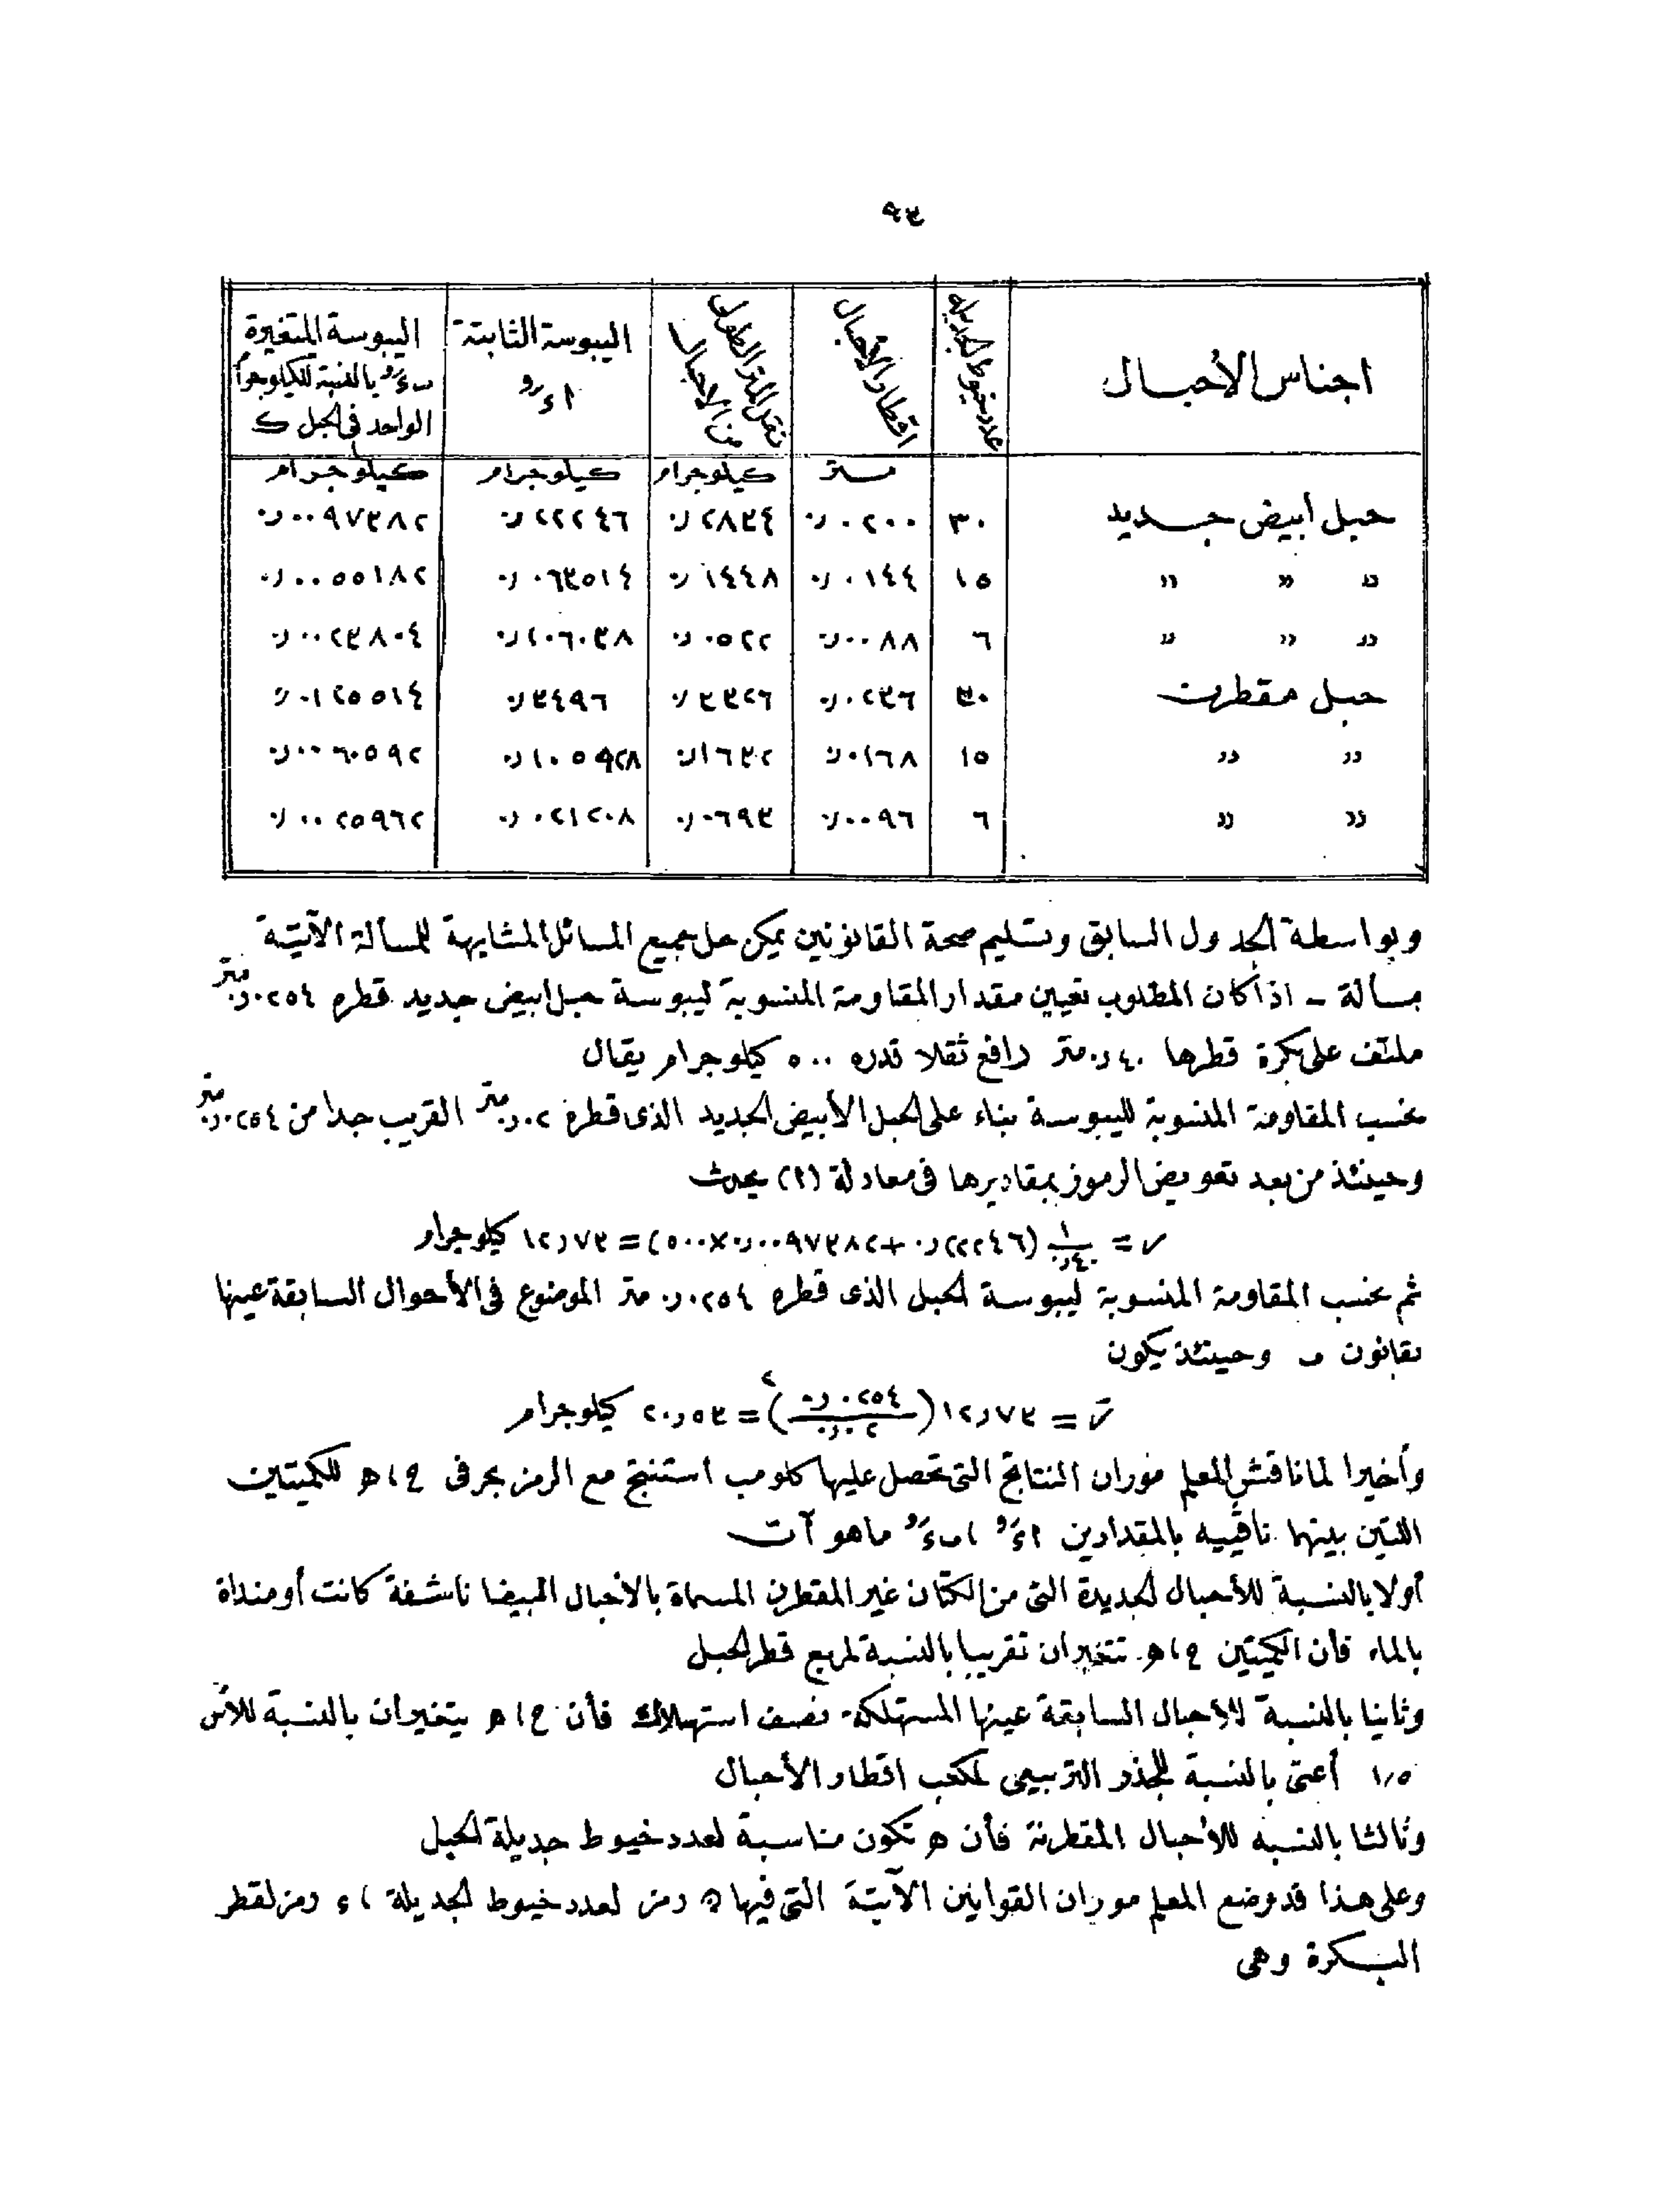 ٩٣
اجناس الأحبال | عدد خيوط الجديلة | اقطار الأحبال | ثقل المتر الطولى من الاحبال | اليبوسة الثابتة | اليبوسة المتغيرة بالنسبة للكيلوجرام الواحد فى الحبل ك
متر | كيلوجرام | كيلوجرام | كيلوجرام
حبل أبيض جديد | ٣٠ | ٠٢٠٠ر٠ | ٢٨٣٤ر٠ | ٢٢٢٤٦ر٠ | ٠٠٩٧٣٨٢ر٠
" " " | ١٥ | ٠١٤٤ر٠ | ١٤٤٨ر٠ | ٠٦٣٥١٤ر٠ | ٠٠٥٥١٨٢ر٠
" " " | ٦ | ٠٠٨٨ر٠ | ٠٥٢٢ر٠ | ٠١٠٦٠٣٨ر٠ | ٠٠٢٣٨٠٤ر٠
حبل مقطرن | ٣٠ | ٠٢٣٦ر٠ | ٣٣٢٦ر٠ | ٣٤٩٦ر٠ | ٠١٢٥٥١٤ر٠
" " | ١٥ | ٠١٦٨ر٠ | ١٦٣٢ر٠ | ١٠٥٩٢٨ر٠ | ٠٠٦٠٥٩٢ر٠
" " | ٦ | ٠٠٩٦ر٠ | ٠٦٩٣ر٠ | ٠٢١٢٠٨ر٠ | ٠٠٢٥٩٦٢ر٠
وبواسطة الجدول السابق وتسليم صحة القانونين يمكن حل جميع المسائل المشابهة للمسألة الآتية
مسألة - اذا كان المطلوب تعيين مقدار المقاومة المنسوبة ليبوسة حبل ابيض جديد قطره ٠٢٥٤ر٠ متر
ملتف على بكرة قطرها ٤٠ر٠ متر رافع ثقلا قدره ٥٠٠ كيلوجرام يقال
نحسب المقاومة المنسوبة لليبوسة بناء على الحبل الأبيض الجديد الذى قطره ٠٢ر٠ متر القريب جدا من ٠٢٥٤ر٠ متر
وحينئذ من بعد تعويض الرموز بمقاديرها فى معادلة (٢) يحدث
س = ١/٤٠ر٠ (٢٢٢٤٦ر٠ + ٠٠٩٧٣٨٢ر٠ × ٥٠٠) = ١٢ر٧٣ كيلوجرام
ثم نحسب المقاومة المنسوبة ليبوسة الحبل الذى قطره ٠٢٥٤ر٠ متر الموضوع فى الأحوال السابقة عينها
بقانون ب وحينئذ يكون
سَ = ١٢ر٧٣ (٠٢٥٤ر٠/٠٢ر٠)٢ = ٢٠ر٥٣ كيلوجرام
وأخيرا لما ناقش المعلم موران النتائج التى تحصل عليها كلومب استنتج مع الرمز بحرفى ح ، ه للكميتين
اللتين بينهما نافييه بالمقدارين ما هو آت
أولا بالنسبة للأحبال الجديدة التى من الكتان غير المقطرن المسماة بالأحبال البيضا ناشفة كانت أو منداة
بالماء فأن الكميتين ح ، ه تتغيران تقريبا بالنسبة لمربع قطر الحبل
وثانيا بالنسبة للأحبال السابقة عينها المستهلكة نصف استهلاك فأن ح ، ه يتغيران بالنسبة للأس
١ر٥ أعنى بالنسبة للجذر التربيعى لمكعب اقطار الأحبال
وثالثا بالنسبة للأحبال المقطرنة فأن ه تكون مناسبة لعدد خيوط جديلة الحبل
وعلى هذا قد وضع المعلم موران القوانين الآتية التى فيها ن رمز لعدد خيوط الجديلة ، ء رمز لقطر
البكرة وهى